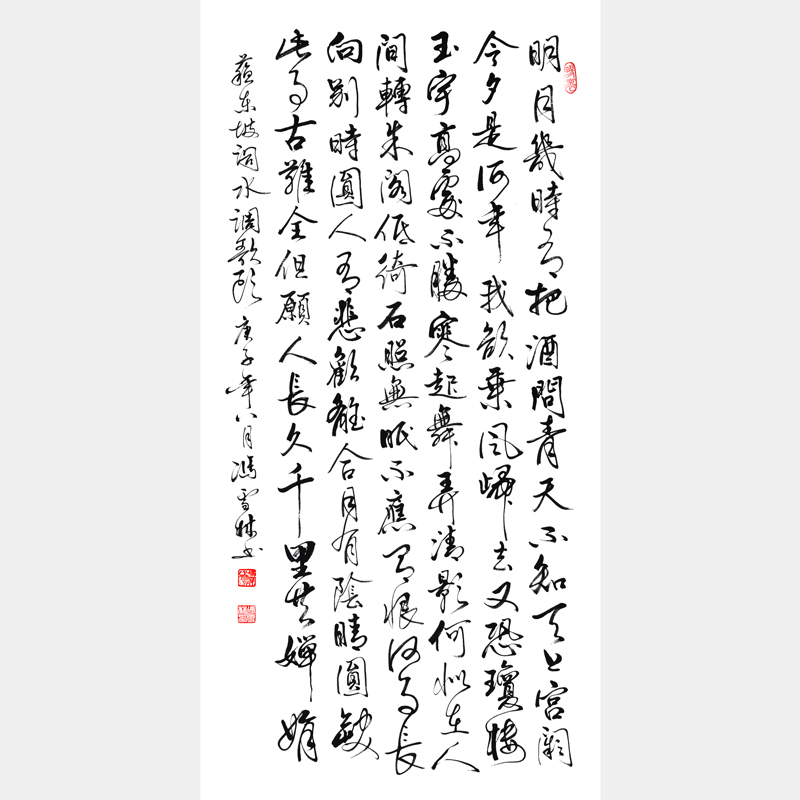 明月幾時有把酒問青天不知天上宮闕
今夕是何年我欲乘風歸去又恐瓊樓
玉宇高處不勝寒起舞弄清影何似在人
間轉朱閣低綺戶照無眠不應有恨何事長
向別時圓人有悲歡離合月有陰晴圓缺
此事古難全但願人長久千里共嬋娟
蘇東坡詞水調歌頭庚子年八月馮雪林書